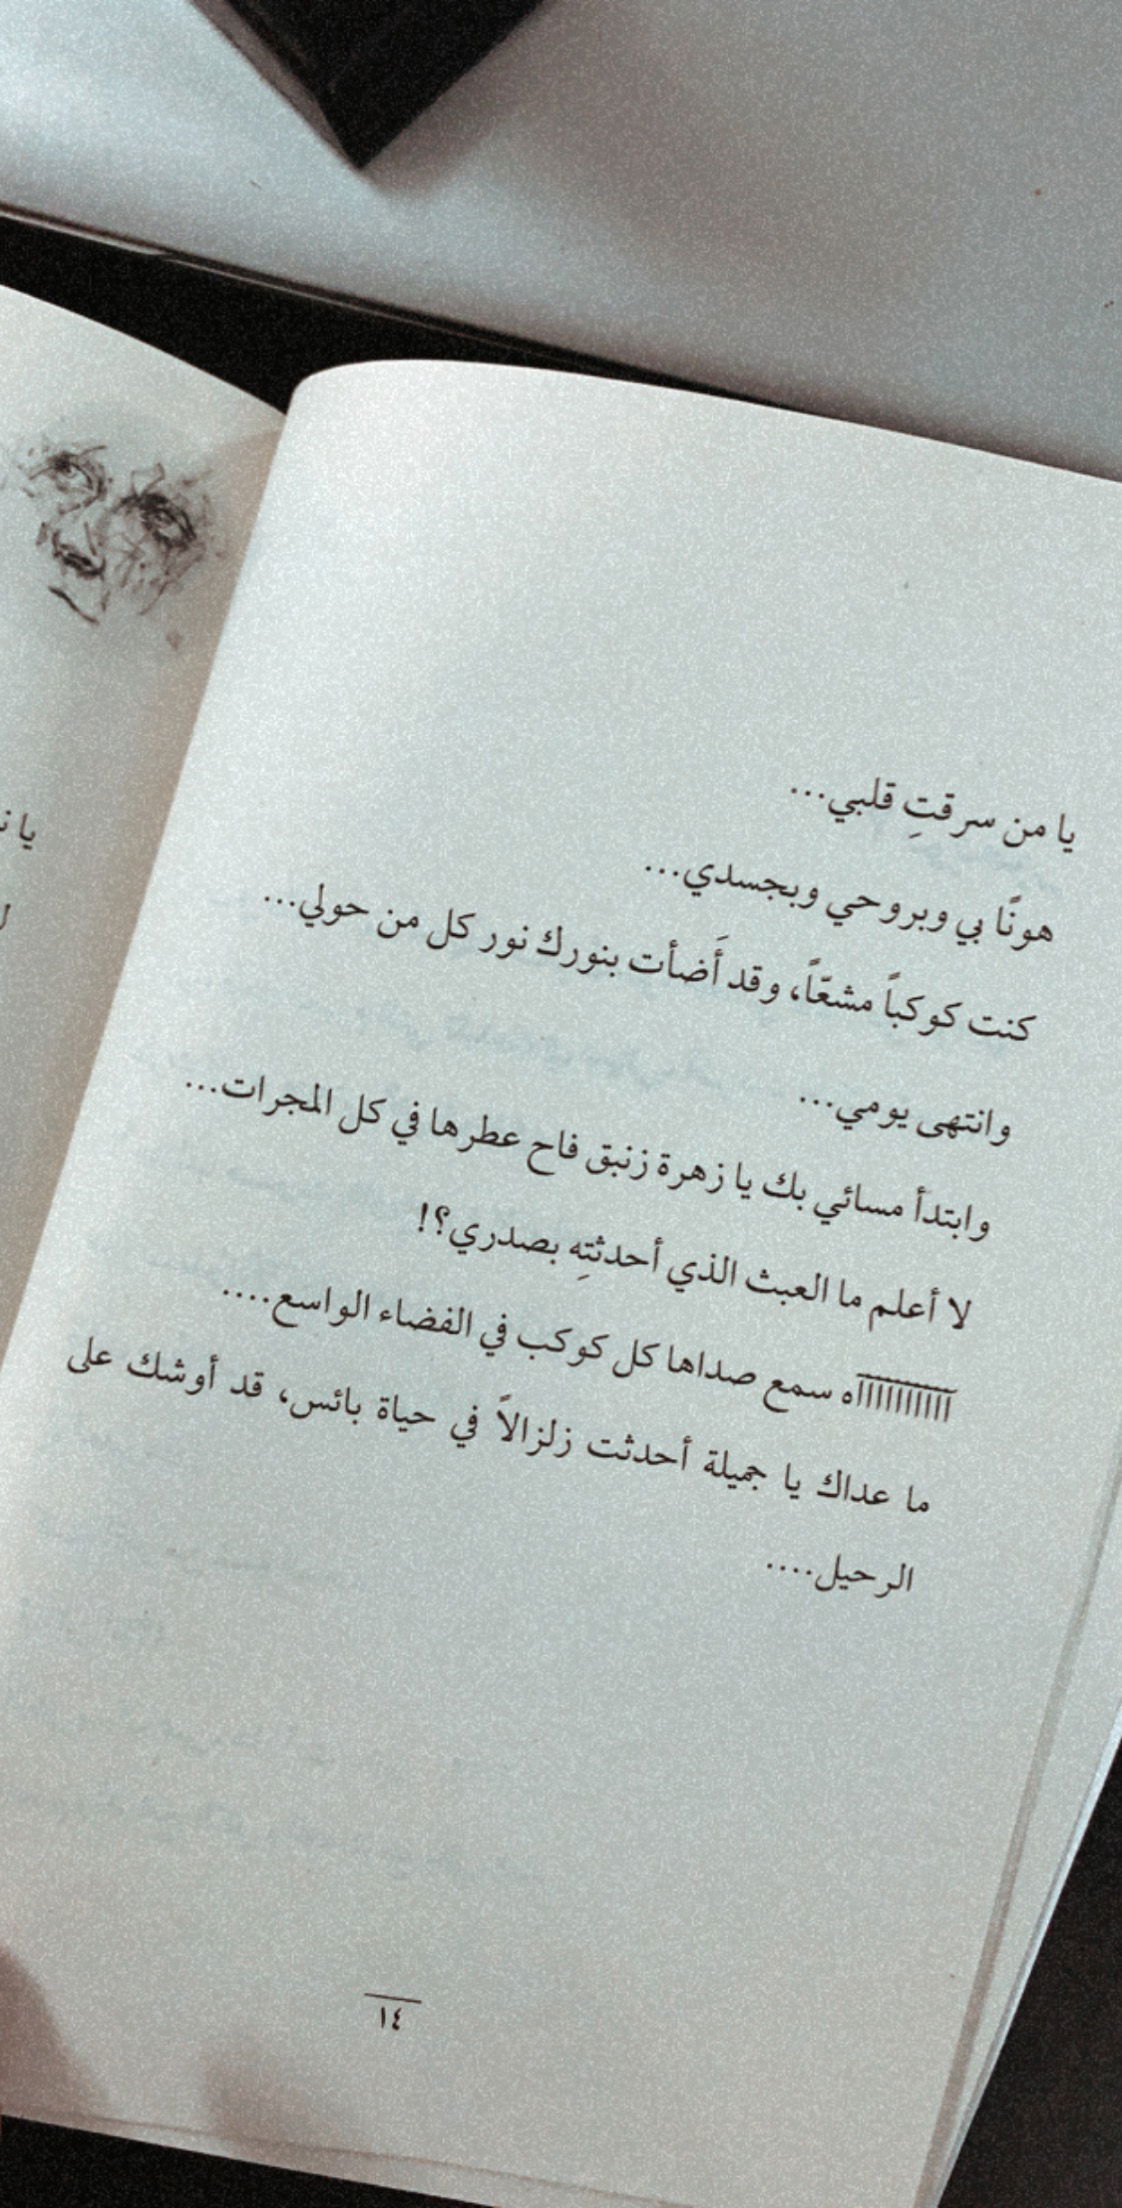 يا من سرقتِ قلبي...
هونًا بي وبروحي وبجسدي...
كنت كوكباً مشعّاً، وقد أَضأت بنورك نور كل من حولي...
وانتهى يومي...
وابتدأ مسائي بك يا زهرة زنبق فاح عطرها في كل المجرات...
لا أعلم ما العبث الذي أحدثتِه بصدري؟!
آآآآآآآآآآآه سمع صداها كل كوكب في الفضاء الواسع....
ما عداك يا جميلة أحدثت زلزالاً في حياة بائس، قد أوشك على
الرحيل....
١٤